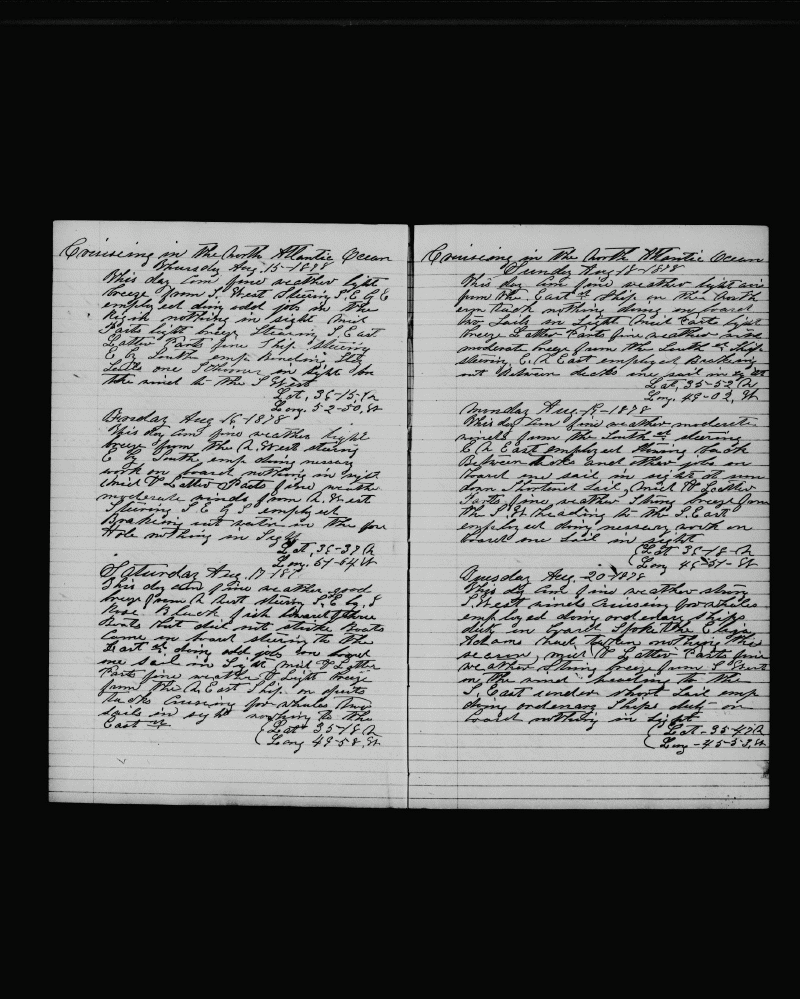 Cruising in the North Atlantic Ocean
Thursday Aug. 15-1878
This day Com fine weather light
breeze from S. West Steering S. E by E
employed doing odd jobs in the
nothing in sight Mid
Parts light breeze Stearing S East
Latter Parts fine Ship Stearing
E by South emp
one Schooner in sight on
the wind to the S West
Lat, 36-15. N
Long. 52-50. W
Friday Aug 16-1878
This day Com fine weather light
breeze from the N. West stearing
E by South emp doing nessary
work on board nothing in sight
Mid & Latter Parts fine weather
moderate winds from N. West
Stearing S E by S employed
Braking out water in the fore
Hole nothing in Sight
Lat, 36-37 N
Long. 51-54 W
Saturday Aug. 17-187
This day Com fine weather good
breeze from N West stearing S. E by S
Rose Black fish Lowered three
Boats But did not strike Boats
Come on board stearing to the
East doing odd jobs on board
one sail in Sight Mid & Latter
Parts fine weather & Light breeze
from the N East Ship on
tacks Cruising for whales two
sails in sight working to the
East
Lat - 35-18 N
Long 49-58. W
Cruising in the North Atlantic Ocean
Sunday Aug 18-1878
This day Com fine weather light airs
from the East Ship on the North
ern tack nothing doing on board
two Sails in Sight Mid Parts light
breeze Latter Parts fine weather with
moderate breeze from the South Ship
stearing E. N East employed Breaking
out Between decks one sail in sight
Lat, 35-52 N
Long, 49-02, W
Munday Aug. 19-1878
This day Com fine weather moderate
winds from the South stearing
E N East employed Stowing back
Between decks and other jobs on
board one sail in sight at sun
down Shortened Sail, Mid & Latter
Parts fine weather Strong breeze from
the S. W heading to the S. East
employed doing nessary work on
board one sail in sight
Lat 36-18-N
Long 46-51-W
Tuesday Aug-20-1878
This day Com fine weather strong
S. West winds Cruising for whales
employed doing ordenary ships
duty on board Spoke the Eliza
Adams had taken nothing this
season, Mid & Latter Parts fine
weather Strong breeze from S West
on the wind heading to the
S. East under short Sail emp
doing ordenary Ships duty on
board nothing in Sight
Lat-35-47 N
Long-45-53, W